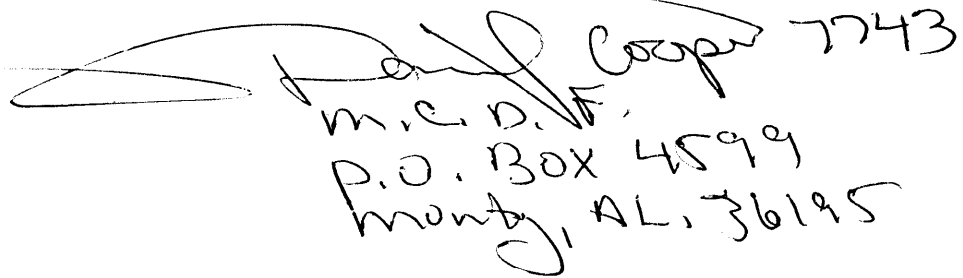 Daniel Cooper 7743
M.C.D.F.
P.O. BOX 4599
Montg, AL. 36195